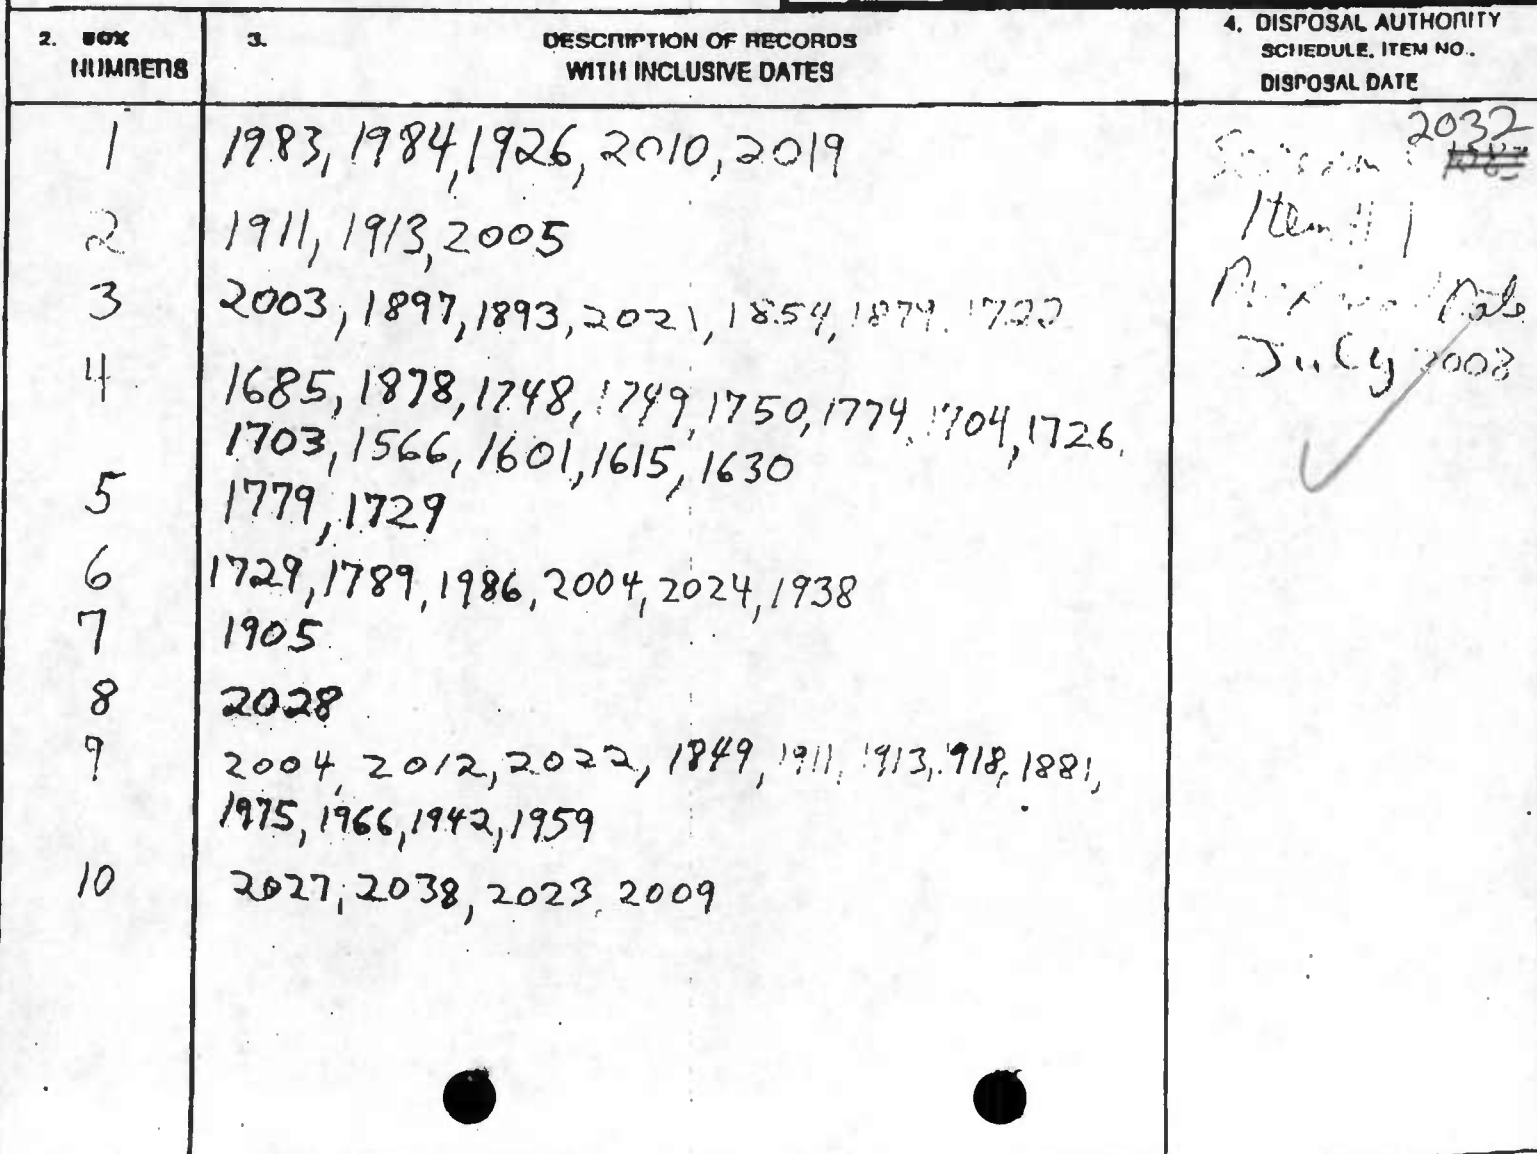 2. BOX NUMBERS
3. DESCRIPTION OF RECORDS WITH INCLUSIVE DATES
4. DISPOSAL AUTHORITY
SCHEDULE, ITEM NO.,
DISPOSAL DATE
1 1983, 1984, 1926, 2010, 2019
2032
2 1911, 1913, 2005
Item # 1
3 2003, 1897, 1893, 2021, 1854, 1879, 1722
Date
4 1685, 1878, 1748, 1749, 1750, 1774, 1704, 1726,
July 2008
1703, 1566, 1601, 1615, 1630
5 1779, 1729
6 1729, 1789, 1986, 2004, 2024, 1938
7 1905
8 2028
9 2004, 2012, 2022, 1849, 1911, 1913, 1918, 1881,
1975, 1966, 1942, 1959
10 2027, 2038, 2023, 2009